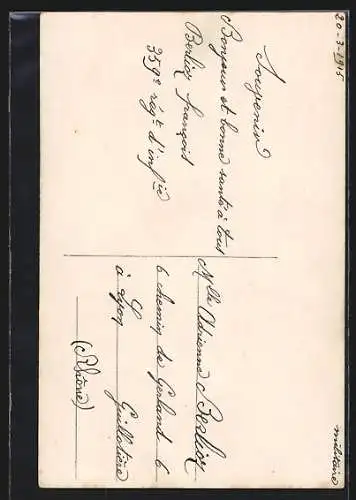 20-3-1915
Souvenir
Bonjour et bonne santé à tous
Berlioz françois
359e régt d'infie
militaire
Mlle Adrienne Berlioz
6 chemin de Gerland 6
à Lyon Guillotière
(Rhône)